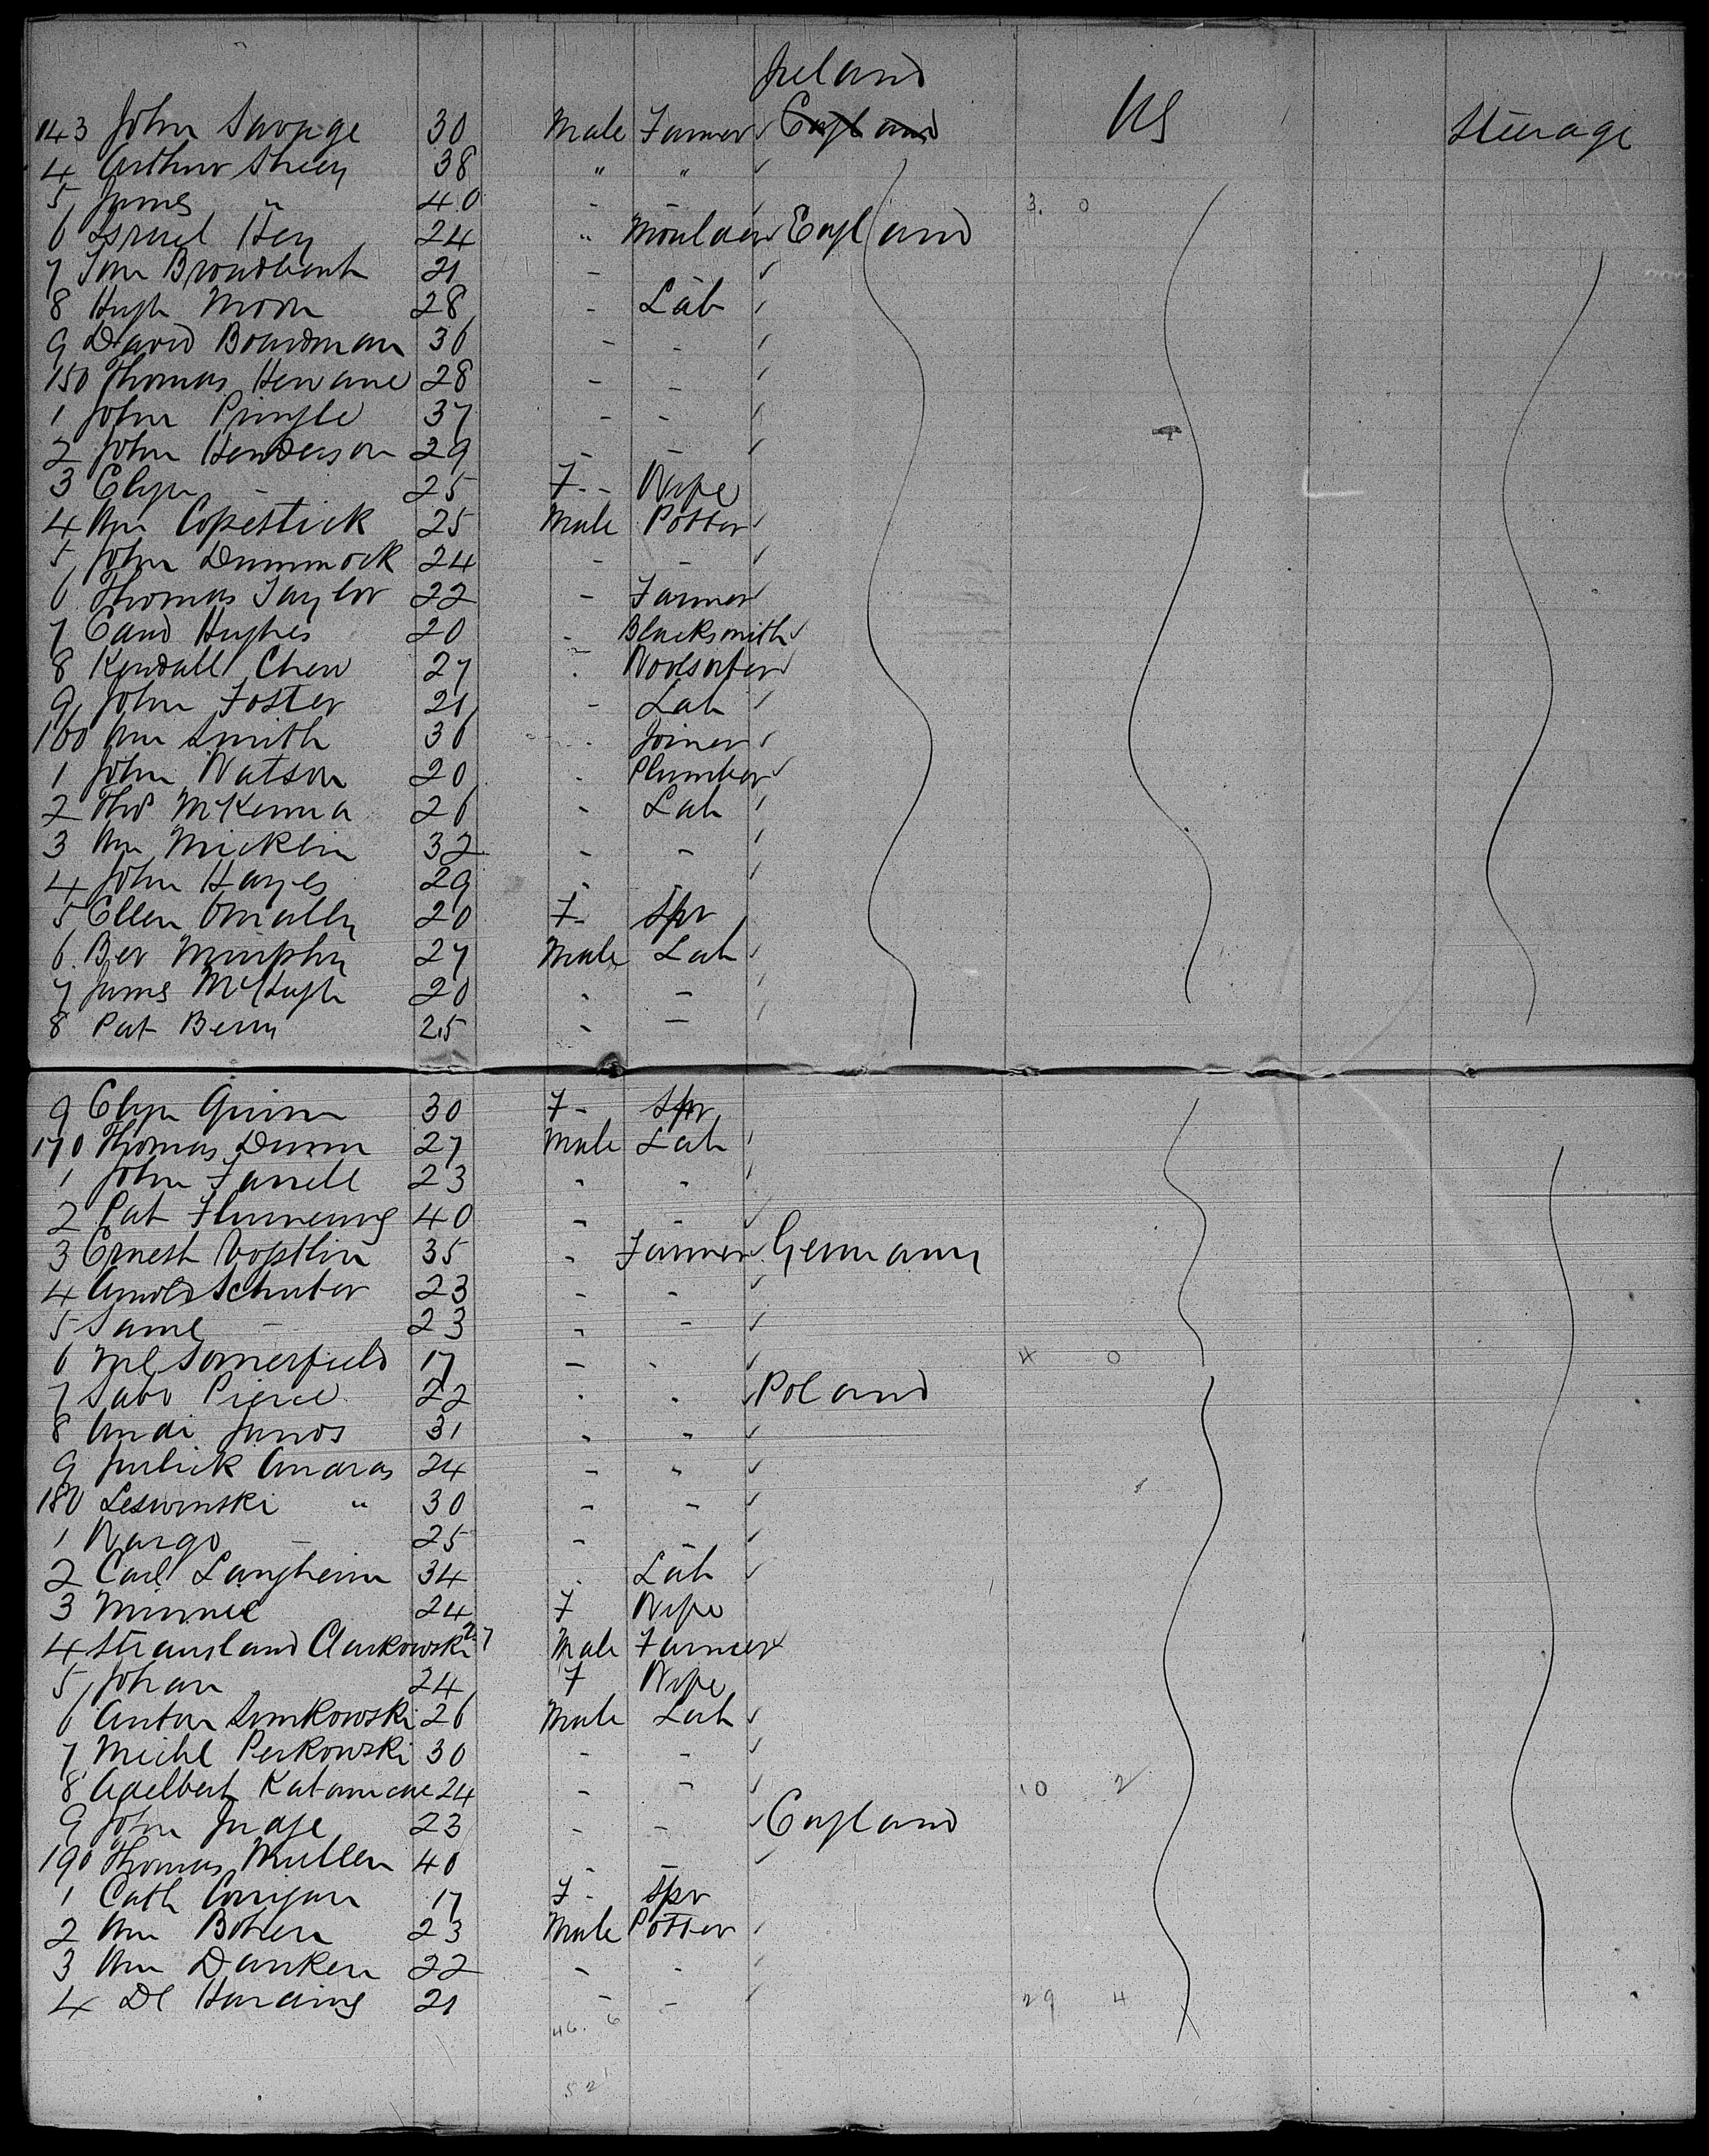 Ireland
143 John Savage 30 Male Farmer ✓ England US Steerage
4 Arthur Sheey 38 " " ✓
5 James " 40 - - ✓ 3. 0
6 Israel Hey 24 " Moulder ✓ England
7 Tom Broadbent 21 - ✓
8 Hugh Moon 28 - Lab ✓
9 David Boardman 36 - - ✓
150 Thomas 28 - - ✓
1 John Pringle 37 - - ✓
2 John Henderson 29 - - ✓
3 Elizn - 25 F - Wife
4 Wm Copestick 25 Male Potter ✓
5 John Dimmock 24 - - ✓
6 Thomas Taylor 22 - Farmer ✓
7 Hughes 20 - Blacksmith ✓
8 Kendall Chew 27 - Woolsorter ✓
9 John Foster 21 - Lab ✓
160 Wm Smith 36 - Joiner ✓
1 John Watson 20 - Plumber ✓
2 Thos McKenna 26 - Lab ✓
3 Wm Micklin 32 - - ✓
4 John Hayes 29 - - ✓
5 Ellen Omally 20 F - Spr
6 Ber Murphy 27 Male Lab ✓
7 James McHugh 20 - - ✓
8 Pat Berry 25 - -
9 Elizn Quinn 30 F - Spr
170 Thomas Dunn 27 Male Lab ✓
1 John Farrell 23 - - ✓
2 Pat Flumeung 40 - - ✓
3 Ernest 35 - Farmer ✓ Germany
4 Arnold Schuter 23 - - ✓
5 Saml - 23 - - ✓
6 Ml Somerfield 17 - - ✓ 4 0
7 Sabo Pierce 22 - - ✓ Poland
8 Andi Janos 31 - - ✓
9 Andras 24 - - ✓
180 Leswinski " 30 - - ✓
1 Wargo - 25 - - ✓
2 Carl Langheim 34 - Lab ✓
3 Minnie 24 F Wife
4 Strausland Clarkowski 27 Male Farmer ✓
5 Johan 24 F Wife
6 Anton Simkowski 26 Male Lab ✓
7 Michl Perkowski 30 - - ✓
8 Adelbert 24 - - ✓ 10 2
9 John Judge 23 - - ✓ England
190 Thomas Mullen 40 - - ✓
1 Cath Corrigan 17 F - Spr
2 Wm Bohen 23 Male Potter ✓
3 Wm Danken 22 - - ✓
4 Dl Harding 21 - - ✓ 29 4
46. 6
52